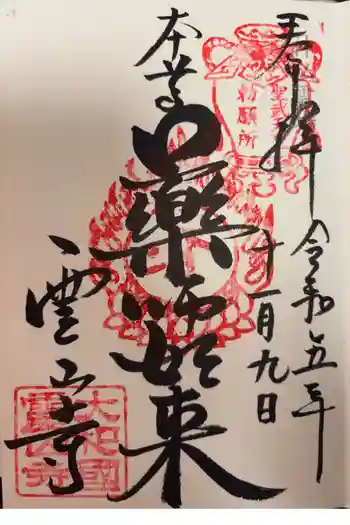 奉拝
令和五年
十一月九日
聖武天皇
勅願所
本尊
薬師如来
霊山寺
大和國
霊山寺